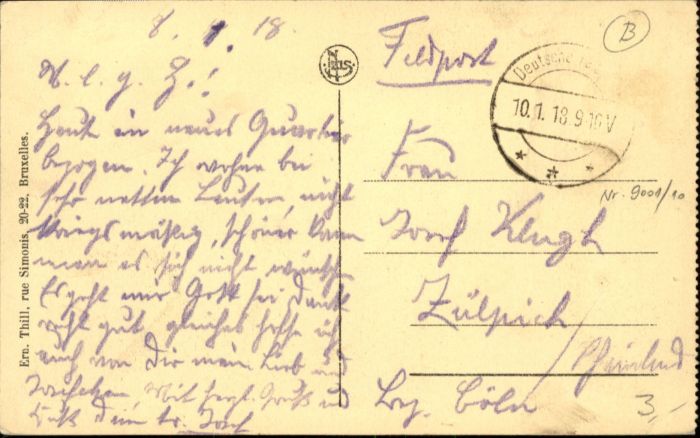 8. 1. 18.
M. l. g. H.!
Heute ein neues Quartier
bezogen. Ich wohne bei
sehr netten Leuten, nicht
kriegsmäßig, schöner kann
man es sich nicht wünschen
Es geht mir Gott sei Dank
recht gut, gleiches hoffe ich
auch von Dir mein Lieb und
Mit herzl. Gruß und
Kuß Dein tr.
Ern. Thill, rue Simonis, 20-22. Bruxelles.
Feldpost
Deutsche
10.1.18.9-10V
B
Nr. 9001/10
Frau
Zülpich
Rheinland
Bez. Cöln
3,-